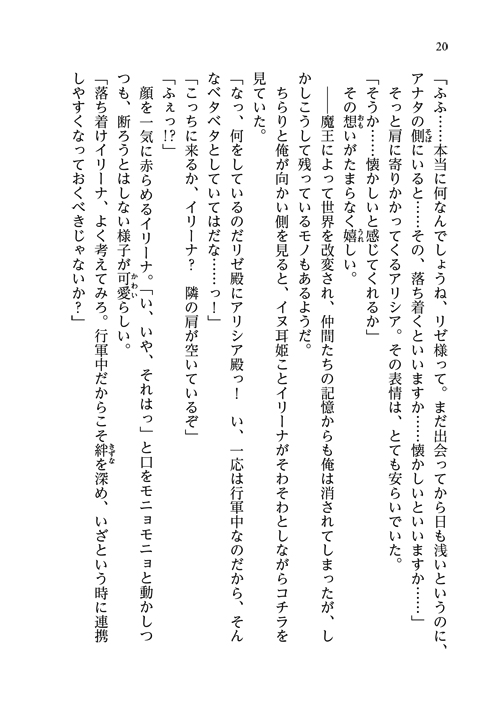 20
「ふふ……本当に何なんでしょうね、リゼ様って。まだ出会ってから日も浅いというのに、
アナタの側にいると……その、落ち着くといいますか……懐かしいといいますか……」
そっと肩に寄りかかってくるアリシア。その表情は、とても安らいでいた。
「そうか……懐かしいと感じてくれるか」
その想いがたまらなく嬉しい。
――魔王によって世界を改変され、仲間たちの記憶からも俺は消されてしまったが、し
かしこうして残っているモノもあるようだ。
ちらりと俺が向かい側を見ると、イヌ耳姫ことイリーナがそわそわとしながらコチラを
見ていた。
「なっ、何をしているのだリゼ殿にアリシア殿っ！　い、一応は行軍中なのだから、そん
なベタベタとしていてはだな……っ！」
「こっちに来るか、イリーナ？　隣の肩が空いているぞ」
「ふぇっ!?」
顔を一気に赤らめるイリーナ。「い、いや、それはっ」と口をモニョモニョと動かしつ
つも、断ろうとはしない様子が可愛らしい。
「落ち着けイリーナ、よく考えてみろ。行軍中だからこそ絆を深め、いざという時に連携
しやすくなっておくべきじゃないか？」